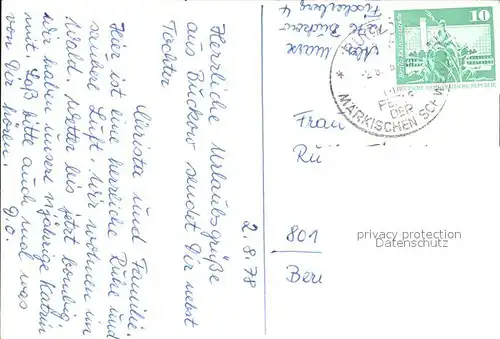 2.8.78
Herrliche Urlaubsgrüße
aus Buckow sendet Dir nebst
Tochter
Christa und Familie.
Hier ist eine herrliche Ruhe und
saubere Luft. Wir wohnen im
Wald. Wetter bis jetzt
Wir haben unsere 11jährige Katrin
mit. Laß bitte auch mal was
von Dir hören.
D.O.
Buckow
Fischerberg 4
10
DEUTSCHE DEMOKRATISCHE REPUBLIK
PERLE
DER
MÄRKISCHEN SCHW
Frau
Rü
801
Ber
privacy protection
Datenschutz